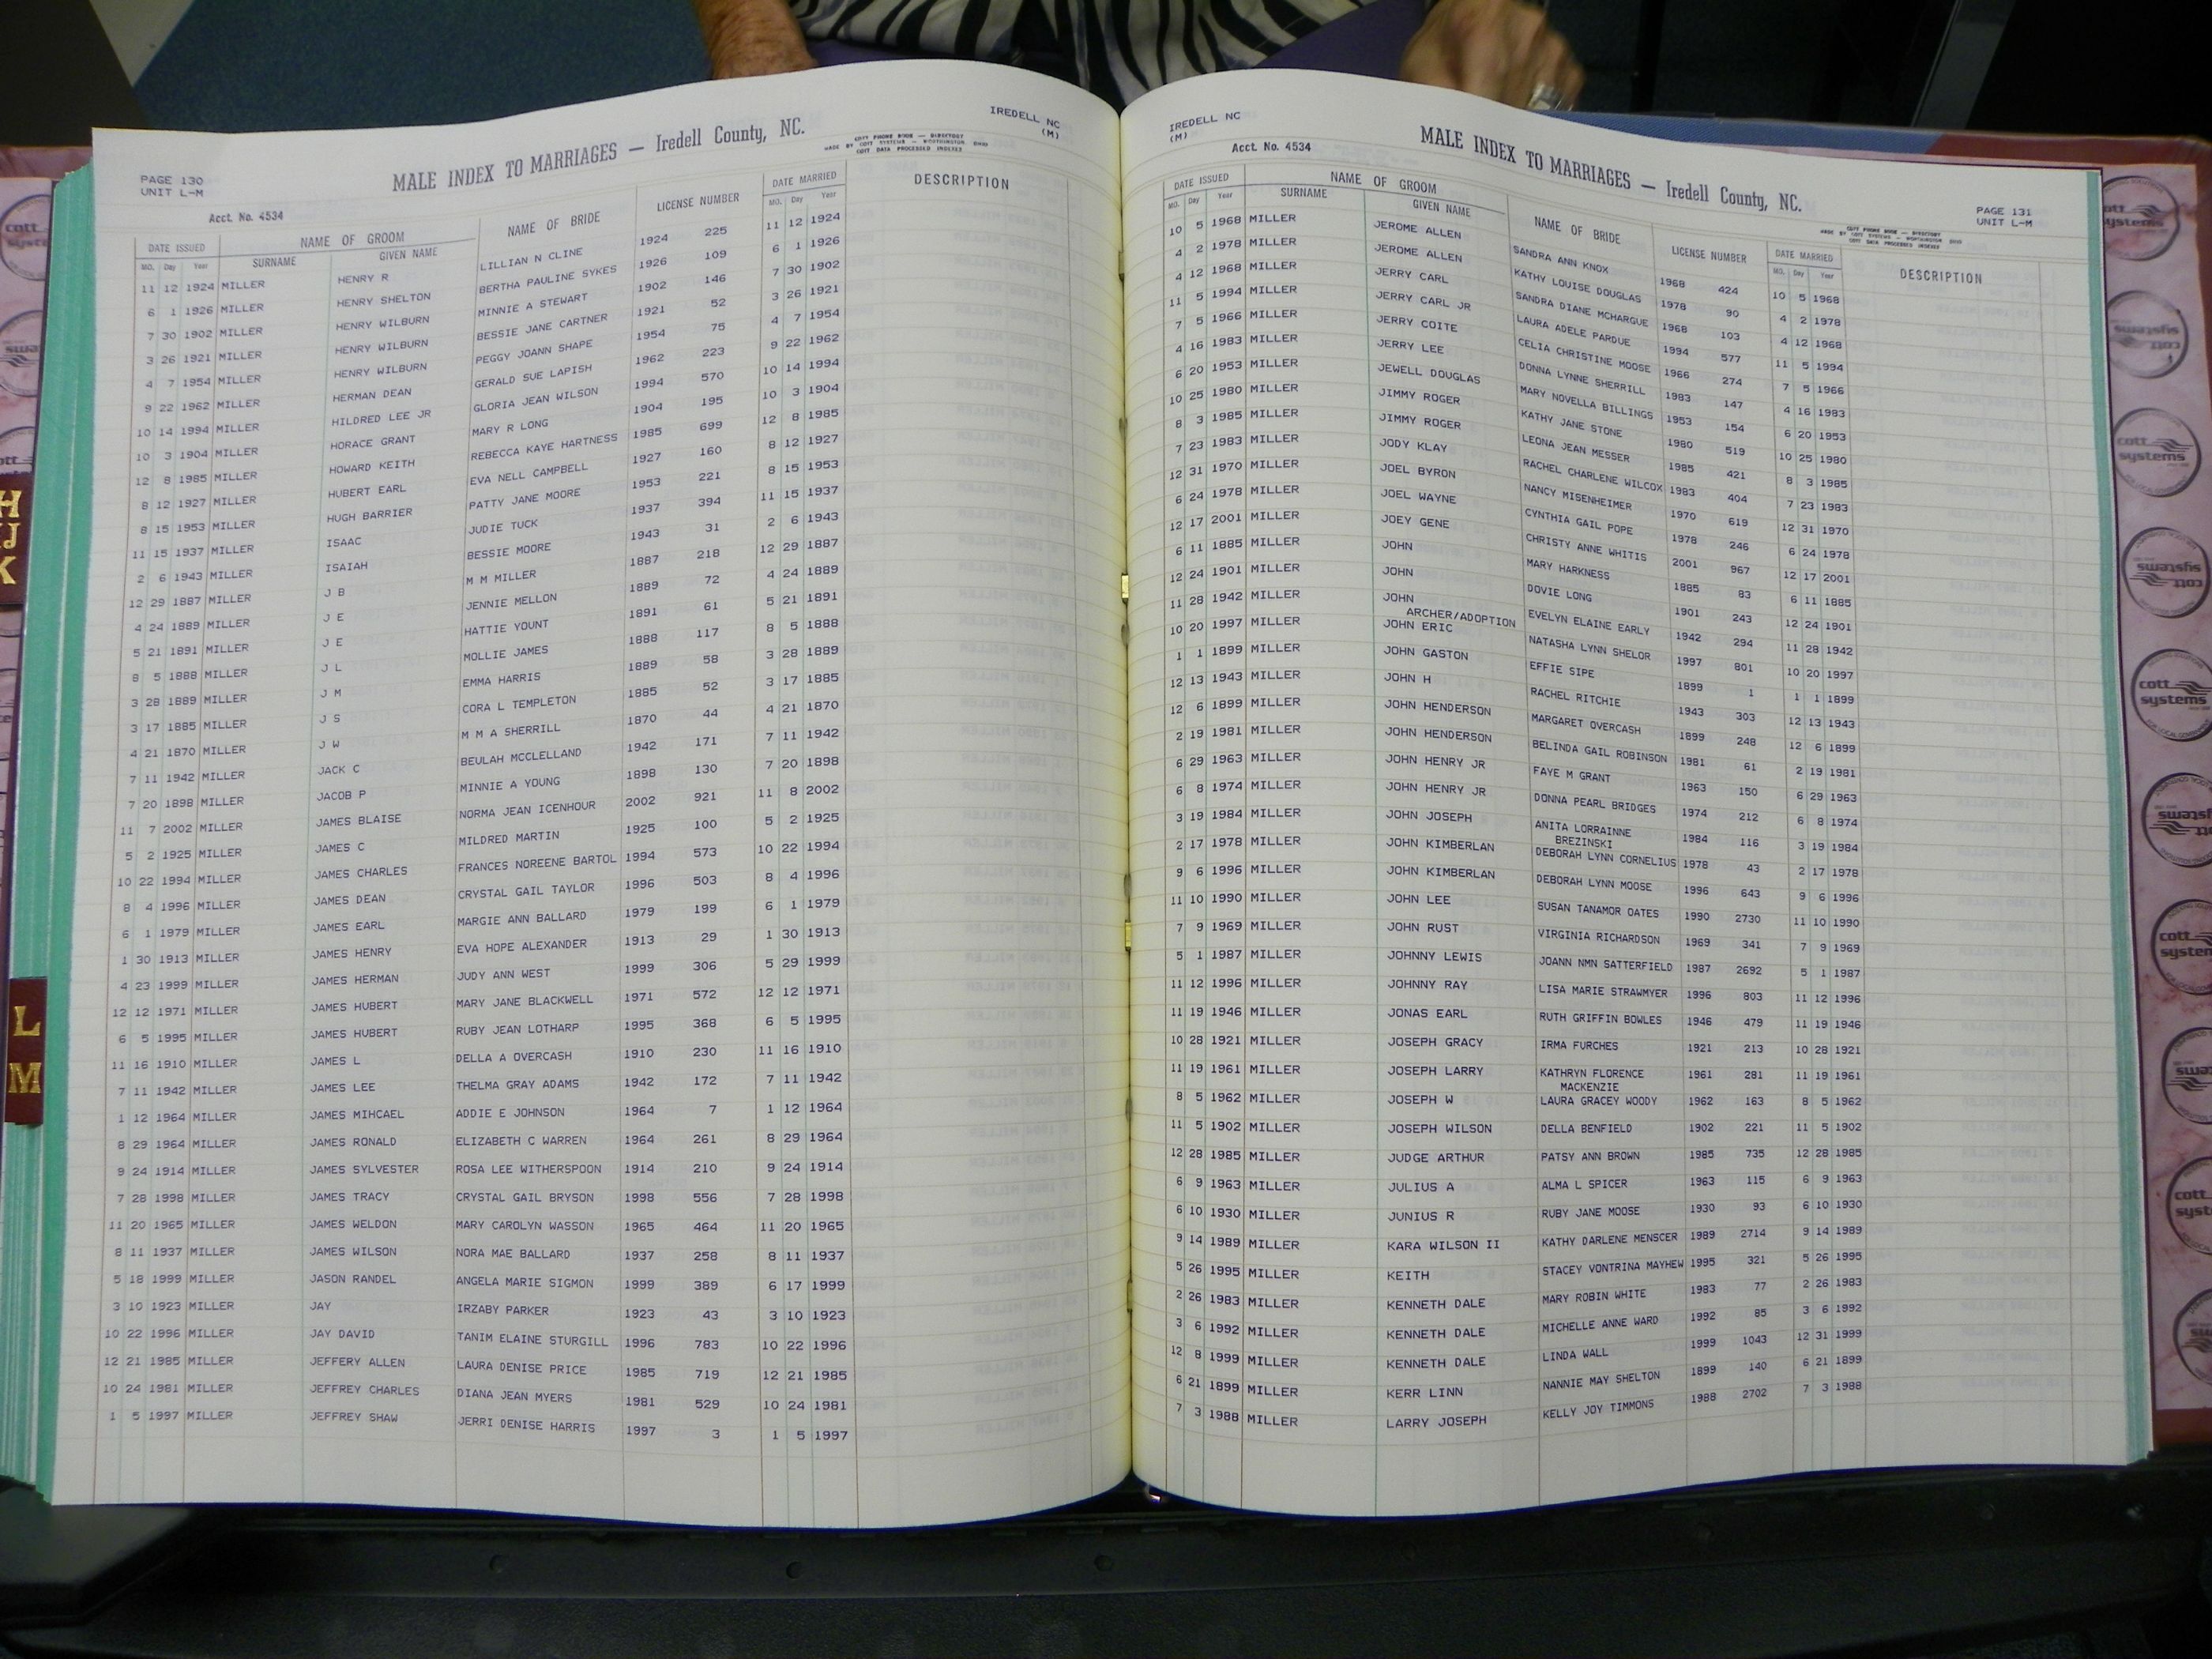 IREDELL NC
(M)
MALE INDEX TO MARRIAGES — Iredell County, NC.
COTT PHONE BOOK — DIRECTORY
MADE BY COTT SYSTEMS — WORTHINGTON OHIO
COTT DATA PROCESSED INDEXES
PAGE 130
UNIT L-M
Acct. No. 4534
DATE ISSUED NAME OF GROOM NAME OF BRIDE LICENSE NUMBER DATE MARRIED DESCRIPTION
MO. Day Year SURNAME GIVEN NAME MO. Day Year
11 12 1924 MILLER HENRY R LILLIAN N CLINE 1924 225 11 12 1924
6 1 1926 MILLER HENRY SHELTON BERTHA PAULINE SYKES 1926 109 6 1 1926
7 30 1902 MILLER HENRY WILBURN MINNIE A STEWART 1902 146 7 30 1902
3 26 1921 MILLER HENRY WILBURN BESSIE JANE CARTNER 1921 52 3 26 1921
4 7 1954 MILLER HENRY WILBURN PEGGY JOANN SHAPE 1954 75 4 7 1954
9 22 1962 MILLER HERMAN DEAN GERALD SUE LAPISH 1962 223 9 22 1962
10 14 1994 MILLER HILDRED LEE JR GLORIA JEAN WILSON 1994 570 10 14 1994
10 3 1904 MILLER HORACE GRANT MARY R LONG 1904 195 10 3 1904
12 8 1985 MILLER HOWARD KEITH REBECCA KAYE HARTNESS 1985 699 12 8 1985
8 12 1927 MILLER HUBERT EARL EVA NELL CAMPBELL 1927 160 8 12 1927
8 15 1953 MILLER HUGH BARRIER PATTY JANE MOORE 1953 221 8 15 1953
11 15 1937 MILLER ISAAC JUDIE TUCK 1937 394 11 15 1937
2 6 1943 MILLER ISAIAH BESSIE MOORE 1943 31 2 6 1943
12 29 1887 MILLER J B M M MILLER 1887 218 12 29 1887
4 24 1889 MILLER J E JENNIE MELLON 1889 72 4 24 1889
5 21 1891 MILLER J E HATTIE YOUNT 1891 61 5 21 1891
8 5 1888 MILLER J L MOLLIE JAMES 1888 117 8 5 1888
3 28 1889 MILLER J M EMMA HARRIS 1889 58 3 28 1889
3 17 1885 MILLER J S CORA L TEMPLETON 1885 52 3 17 1885
4 21 1870 MILLER J W M M A SHERRILL 1870 44 4 21 1870
7 11 1942 MILLER JACK C BEULAH MCCLELLAND 1942 171 7 11 1942
7 20 1898 MILLER JACOB P MINNIE A YOUNG 1898 130 7 20 1898
11 7 2002 MILLER JAMES BLAISE NORMA JEAN ICENHOUR 2002 921 11 8 2002
5 2 1925 MILLER JAMES C MILDRED MARTIN 1925 100 5 2 1925
10 22 1994 MILLER JAMES CHARLES FRANCES NOREENE BARTOL 1994 573 10 22 1994
8 4 1996 MILLER JAMES DEAN CRYSTAL GAIL TAYLOR 1996 503 8 4 1996
6 1 1979 MILLER JAMES EARL MARGIE ANN BALLARD 1979 199 6 1 1979
1 30 1913 MILLER JAMES HENRY EVA HOPE ALEXANDER 1913 29 1 30 1913
4 23 1999 MILLER JAMES HERMAN JUDY ANN WEST 1999 306 5 29 1999
12 12 1971 MILLER JAMES HUBERT MARY JANE BLACKWELL 1971 572 12 12 1971
6 5 1995 MILLER JAMES HUBERT RUBY JEAN LOTHARP 1995 368 6 5 1995
11 16 1910 MILLER JAMES L DELLA A OVERCASH 1910 230 11 16 1910
7 11 1942 MILLER JAMES LEE THELMA GRAY ADAMS 1942 172 7 11 1942
1 12 1964 MILLER JAMES MIHCAEL ADDIE E JOHNSON 1964 7 1 12 1964
8 29 1964 MILLER JAMES RONALD ELIZABETH C WARREN 1964 261 8 29 1964
9 24 1914 MILLER JAMES SYLVESTER ROSA LEE WITHERSPOON 1914 210 9 24 1914
7 28 1998 MILLER JAMES TRACY CRYSTAL GAIL BRYSON 1998 556 7 28 1998
11 20 1965 MILLER JAMES WELDON MARY CAROLYN WASSON 1965 464 11 20 1965
8 11 1937 MILLER JAMES WILSON NORA MAE BALLARD 1937 258 8 11 1937
5 18 1999 MILLER JASON RANDEL ANGELA MARIE SIGMON 1999 389 6 17 1999
3 10 1923 MILLER JAY IRZABY PARKER 1923 43 3 10 1923
10 22 1996 MILLER JAY DAVID TANIM ELAINE STURGILL 1996 783 10 22 1996
12 21 1985 MILLER JEFFERY ALLEN LAURA DENISE PRICE 1985 719 12 21 1985
10 24 1981 MILLER JEFFREY CHARLES DIANA JEAN MYERS 1981 529 10 24 1981
1 5 1997 MILLER JEFFREY SHAW JERRI DENISE HARRIS 1997 3 1 5 1997
IREDELL NC
(M)
Acct. No. 4534
MALE INDEX TO MARRIAGES — Iredell County, NC.
COTT PHONE BOOK — DIRECTORY
MADE BY COTT SYSTEMS — WORTHINGTON OHIO
COTT DATA PROCESSED INDEXES
PAGE 131
UNIT L-M
DATE ISSUED NAME OF GROOM NAME OF BRIDE LICENSE NUMBER DATE MARRIED DESCRIPTION
MO. Day Year SURNAME GIVEN NAME MO. Day Year
10 5 1968 MILLER JEROME ALLEN SANDRA ANN KNOX 1968 424 10 5 1968
4 2 1978 MILLER JEROME ALLEN KATHY LOUISE DOUGLAS 1978 90 4 2 1978
4 12 1968 MILLER JERRY CARL SANDRA DIANE MCHARGUE 1968 103 4 12 1968
11 5 1994 MILLER JERRY CARL JR LAURA ADELE PARDUE 1994 577 11 5 1994
7 5 1966 MILLER JERRY COITE CELIA CHRISTINE MOOSE 1966 274 7 5 1966
4 16 1983 MILLER JERRY LEE DONNA LYNNE SHERRILL 1983 147 4 16 1983
6 20 1953 MILLER JEWELL DOUGLAS MARY NOVELLA BILLINGS 1953 154 6 20 1953
10 25 1980 MILLER JIMMY ROGER KATHY JANE STONE 1980 519 10 25 1980
8 3 1985 MILLER JIMMY ROGER LEONA JEAN MESSER 1985 421 8 3 1985
7 23 1983 MILLER JODY KLAY RACHEL CHARLENE WILCOX 1983 404 7 23 1983
12 31 1970 MILLER JOEL BYRON NANCY MISENHEIMER 1970 619 12 31 1970
6 24 1978 MILLER JOEL WAYNE CYNTHIA GAIL POPE 1978 246 6 24 1978
12 17 2001 MILLER JOEY GENE CHRISTY ANNE WHITIS 2001 967 12 17 2001
6 11 1885 MILLER JOHN MARY HARKNESS 1885 83 6 11 1885
12 24 1901 MILLER JOHN DOVIE LONG 1901 243 12 24 1901
11 28 1942 MILLER JOHN EVELYN ELAINE EARLY 1942 294 11 28 1942
ARCHER/ADOPTION
10 20 1997 MILLER JOHN ERIC NATASHA LYNN SHELOR 1997 801 10 20 1997
1 1 1899 MILLER JOHN GASTON EFFIE SIPE 1899 1 1 1 1899
12 13 1943 MILLER JOHN H RACHEL RITCHIE 1943 303 12 13 1943
12 6 1899 MILLER JOHN HENDERSON MARGARET OVERCASH 1899 248 12 6 1899
2 19 1981 MILLER JOHN HENDERSON BELINDA GAIL ROBINSON 1981 61 2 19 1981
6 29 1963 MILLER JOHN HENRY JR FAYE M GRANT 1963 150 6 29 1963
6 8 1974 MILLER JOHN HENRY JR DONNA PEARL BRIDGES 1974 212 6 8 1974
3 19 1984 MILLER JOHN JOSEPH ANITA LORRAINNE 1984 116 3 19 1984
BREZINSKI
2 17 1978 MILLER JOHN KIMBERLAN DEBORAH LYNN CORNELIUS 1978 43 2 17 1978
9 6 1996 MILLER JOHN KIMBERLAN DEBORAH LYNN MOOSE 1996 643 9 6 1996
11 10 1990 MILLER JOHN LEE SUSAN TANAMOR OATES 1990 2730 11 10 1990
7 9 1969 MILLER JOHN RUST VIRGINIA RICHARDSON 1969 341 7 9 1969
5 1 1987 MILLER JOHNNY LEWIS JOANN NMN SATTERFIELD 1987 2692 5 1 1987
11 12 1996 MILLER JOHNNY RAY LISA MARIE STRAWMYER 1996 803 11 12 1996
11 19 1946 MILLER JONAS EARL RUTH GRIFFIN BOWLES 1946 479 11 19 1946
10 28 1921 MILLER JOSEPH GRACY IRMA FURCHES 1921 213 10 28 1921
11 19 1961 MILLER JOSEPH LARRY KATHRYN FLORENCE 1961 281 11 19 1961
MACKENZIE
8 5 1962 MILLER JOSEPH W LAURA GRACEY WOODY 1962 163 8 5 1962
11 5 1902 MILLER JOSEPH WILSON DELLA BENFIELD 1902 221 11 5 1902
12 28 1985 MILLER JUDGE ARTHUR PATSY ANN BROWN 1985 735 12 28 1985
6 9 1963 MILLER JULIUS A ALMA L SPICER 1963 115 6 9 1963
6 10 1930 MILLER JUNIUS R RUBY JANE MOOSE 1930 93 6 10 1930
9 14 1989 MILLER KARA WILSON II KATHY DARLENE MENSCER 1989 2714 9 14 1989
5 26 1995 MILLER KEITH STACEY VONTRINA MAYHEW 1995 321 5 26 1995
2 26 1983 MILLER KENNETH DALE MARY ROBIN WHITE 1983 77 2 26 1983
3 6 1992 MILLER KENNETH DALE MICHELLE ANNE WARD 1992 85 3 6 1992
12 8 1999 MILLER KENNETH DALE LINDA WALL 1999 1043 12 31 1999
6 21 1899 MILLER KERR LINN NANNIE MAY SHELTON 1899 140 6 21 1899
7 3 1988 MILLER LARRY JOSEPH KELLY JOY TIMMONS 1988 2702 7 3 1988
H
IJ
K
L
M
cott
systems